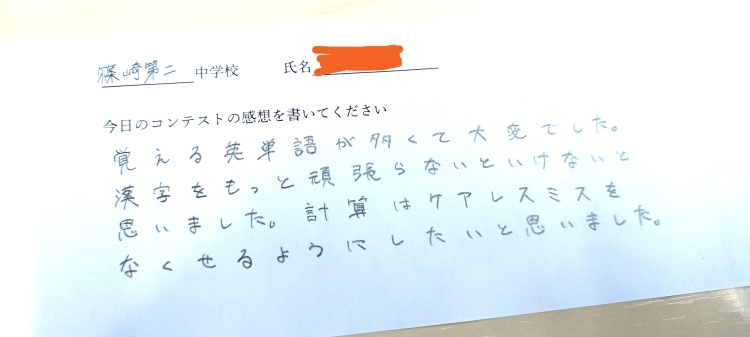 篠崎第二 中学校 氏名
今日のコンテストの感想を書いてください
覚える英単語が多くて大変でした。
漢字をもっと頑張らないといけないと
思いました。計算はケアレスミスを
なくせるようにしたいと思いました。